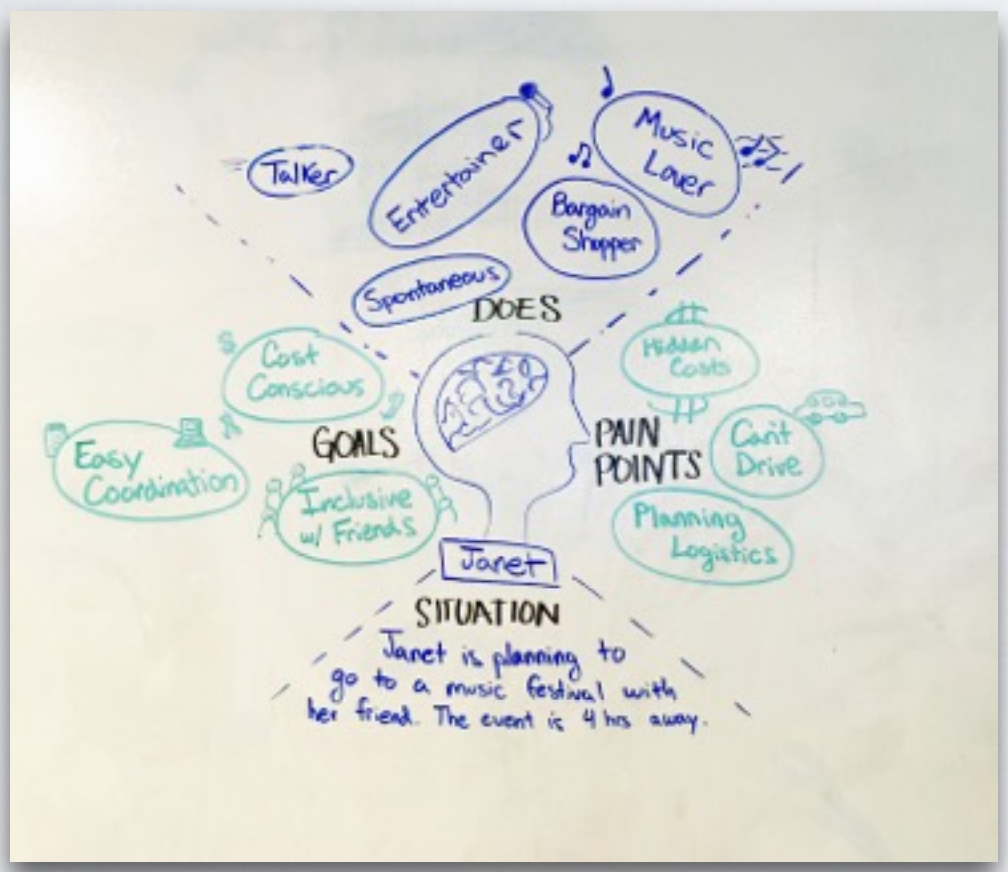 Talker
Entertainer
Music
Lover
Bargain
Shopper
Spontaneous
DOES
Cost
Conscious
GOALS
Easy
Coordination
Inclusive
w/ Friends
Hidden
Costs
PAIN
POINTS
Can't
Drive
Planning
Logistics
Janet
SITUATION
Janet is planning to
go to a music festival with
her friend. The event is 4 hrs away.